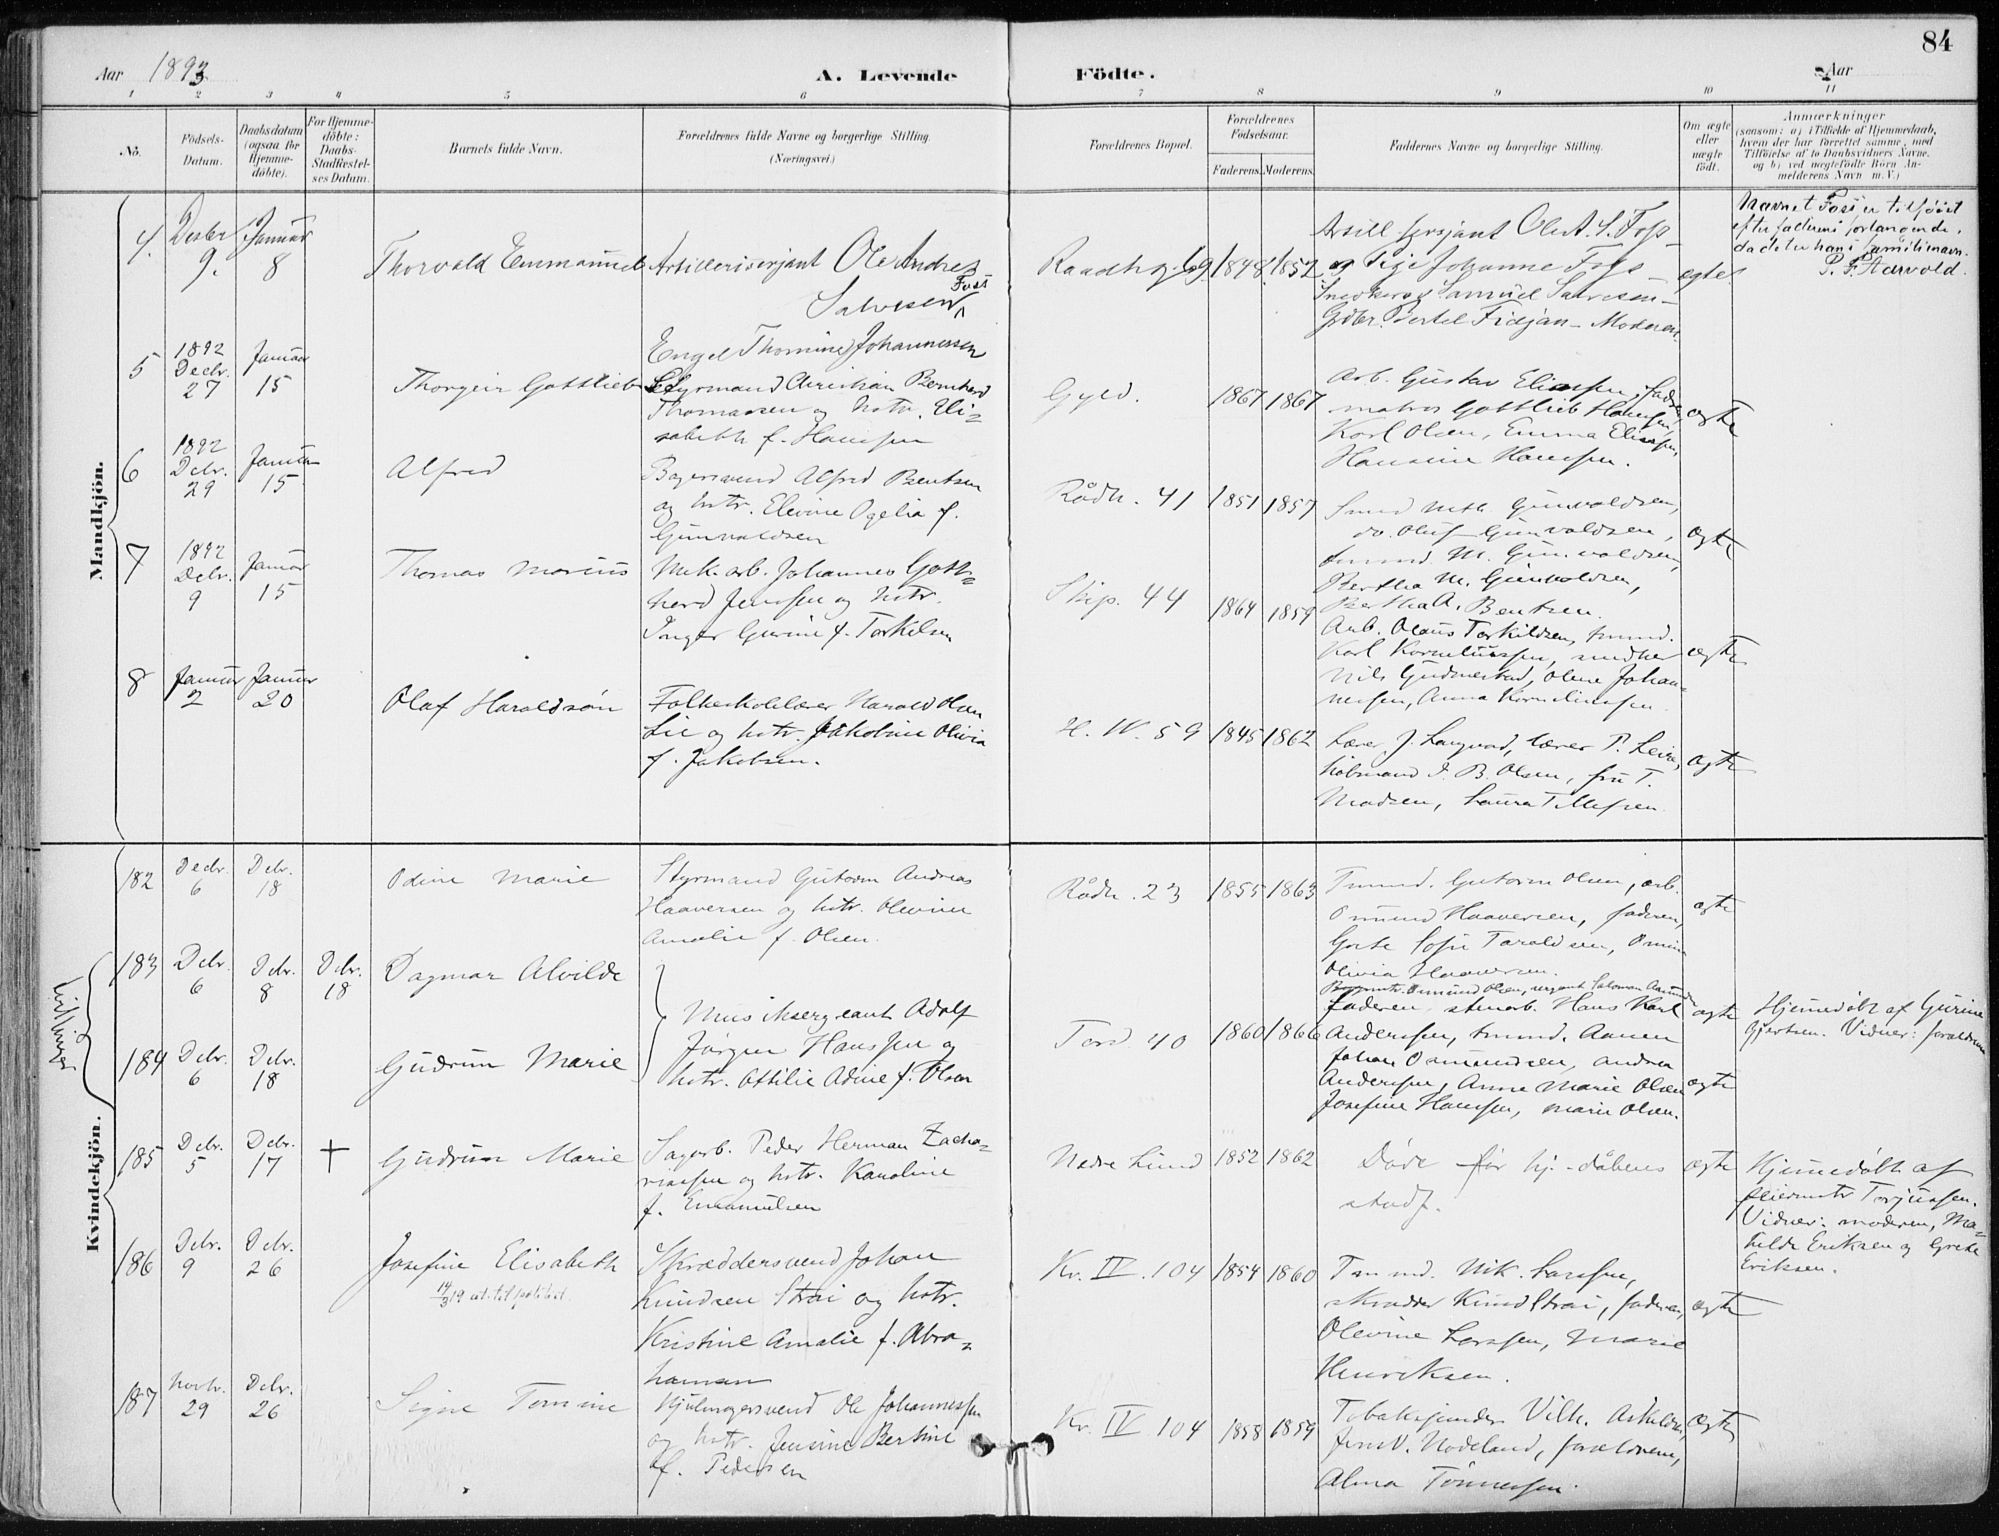 84
Aar 1893
A. Levende Födte.
Aar
1 2 3 4 5 6 7 8 9 10 11
No.
Födsels-
Datum.
Daabsdatum
(ogsaa for
Hjemme-
döbte).
For Hjemme-
döbte:
Daabs-
Stadfæstel-
ses Datum.
Barnets fulde Navn.
Forældrenes fulde Navne og borgerlige Stilling.
(Næringsvei.)
Forældrenes Bopæl.
Forældrenes
Födselsaar.
Faderens. Moderens.
Faddernes Navne og borgerlige Stilling.
Om ægte
eller
uægte
födt.
Anmærkninger
(saasom: a) i Tilfælde af Hjemmedaab,
hvem der har forrettet samme, med
Tilföielse af to Daabsvidners Navne.
og b) ved uægtefödte Börn An-
melderens Navn m. V.)
Mandkjön.
4.
Decbr
9.
Januar
8
Thorvald Emmanuel
Artillerisersjant Ole Andreas
Foss
Salvesen
Raadhg. 69
1848 1852
Artill sersjant Ole A. S. Foss
og Pige Johanne Foss
Snedkersv Samuel Salvesen
Gdbr. Bertel Fidjan - Moderen
ægte
Navnet Foss er tilföiet
efter faderens forlangende,
da det er hans familienavn.
P. F. Aarvold.
5
1892
Decbr.
27
Januar
15
Thorgeir Gottlieb
Engel Thomine Johannessen
Styrmand Christian Bernhard
Thomassen og hstr. Eli=
sabeth f. Hanssen
Gyld.
1867 1867
Arb. Gustav Eliassen, faderen,
matros Gottlieb Hanssen,
Karl Olsen, Emma Eliassen,
Hansine Hanssen.
ægte
6
1892
Debr.
29
Januar
15
Alfred
Bagersvend Alfred Bentsen
og hstr. Elevine Ogelia f.
Gunvaldsen
Rådh. 41
1851 1857
Smed Mth. Gunvaldsen,
do. Oluf Gunvaldsen,
tmmd. M. Gunvaldsen,
Bertha M. Gunvaldsen,
Bertha A. Bentsen.
ægte
7
1892
Debr.
9
Januar
15
Thomas Marius
Mek. arb. Johannes Gott=
herd Jenssen og hstr.
Inger Gurine f. Torkelsen
Skip. 44
1864 1859
Arb. Olaus Torkildsen, tmmd.
Karl Korneliussen, snedker
Nils Gudmestad, Oline Johan=
nessen, Anna Korneliussen.
ægte
8
Januar
2
Januar
20
Olaf Haraldsøn
Folkeskolelærer Harald Olsen
Lie og hstr. Jakobine Olivia
f. Jakobsen.
H. IV. 59
1845 1862
Lærer J. Langvad, lærer P. Leire,
købmand I. B. Olsen, fru T.
Madsen, Laura Tellefsen.
ægte
Kvindekjön.
182
Decbr.
6
Debr.
18
Odine Marie
Styrmand Gutorm Andreas
Haaversen og hstr. Olevine
Amalie f. Olsen.
Rådh. 23
1855 1863
Tmmd. Gutorm Olsen, arb.
Osmund Haaversen, faderen,
Grete Sofie Taraldsen,
Olivia Haaversen.
ægte
Tvillinger
183
Debr.
6
Debr.
8
Debr.
18
Dagmar Alvilde
184
Debr.
6
Debr.
18
Gudrun Marie
Musiksergeant Adolf
Jørgen Hanssen og
hstr. Ottilie Adine f. Olsen
Tord. 40
1860 1866
Osmund Olsen, sergeant Salomon
Faderen, stenarb. Hans Karl
Anderssen, tmmd. Aanen
Johan Osmundsen, Andrea
Anderssen, Anne Marie Olsen
Josefine Hanssen, Marie Olsen.
ægte
ægte
Hjemmedøbt af Gurine
Gjertsen. Vidner: forældrene
185
Debr.
5
Debr.
17
+
Gudrun Marie
Sagarb. Peder Herman Zacha-
riassen og hstr. Karoline
f. Emanuelsen
Nedre Lund
1852 1862
Døde før hj.-dåbens
stadf.
ægte
Hjemmedøbt af
feiermstr Torjussen.
Vidner: moderen, Ma-
thilde Eriksen og Grete
Eriksen.
186
Debr.
9
Debr.
26
Josefine Elisabeth
14/3 19 att. til politiet.
Skræddersvend Johan
Knudsen Strai og hstr.
Kristine Amalie f. Abra=
hamsen
Kr. IV. 104
1854 1860
Tmmd. Nik. Larssen,
skrædder Knud Strai, faderen,
Olevine Larssen, Marie
Henriksen.
ægte
187
Novbr.
29
Debr.
26
Signe Tomine
Hjulmagersvend Ole Johannessen
og hstr. Jensine Bertine
f. Pedersen
Kr. IV 104
1858 1859
Tobakspinder Vilh. Askildsen,
Jens N. Hodeland, forældrene,
Alma Tønnessen.
ægte